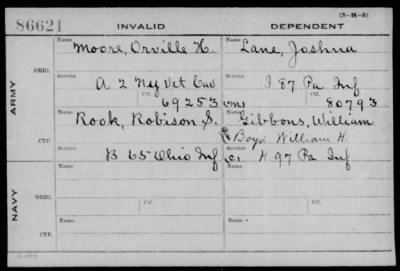 (3-H-3)
86621 INVALID DEPENDENT
Name Name
Moore, Orville H. Lane, Joshua
ARMY
ORIG.
Service Service
A 2 Ny Vet Cav I 87 Pa Inf
Ctf. Ctf.
69253 80793
Name Name
Rook, Robison S. Gibbons, William
Boyd William H.
CTF.
Service Service
B 65 Ohio Inf C1 H 97 Pa Inf
NAVY
ORIG.
Name Name
Ctf. Ctf.
CTF.
Name Name